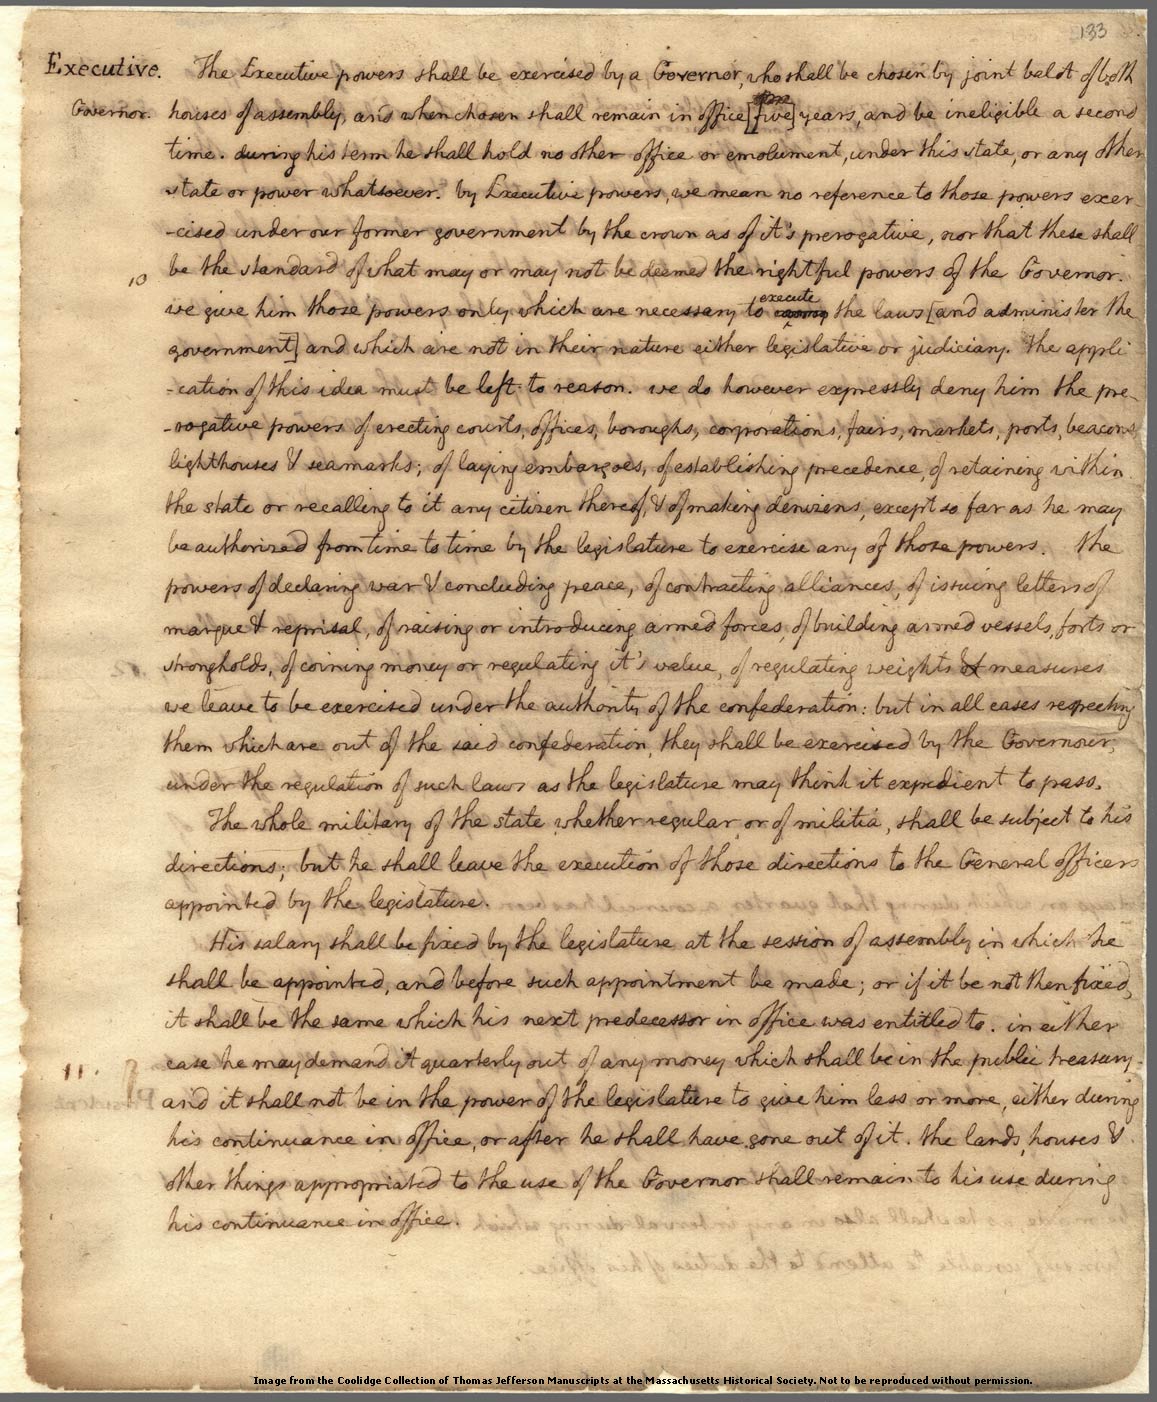 133
Executive. The Executive powers shall be exercised by a Governor, who shall be chosen by joint balot of both
Governor. houses of assembly, and when chosen shall remain in office [five] years, and be ineligible a second
time. during his term he shall hold no other office or emolument, under this state, or any other
state or power whatsoever. by Executive powers, we mean no reference to those powers exer-
-cised under our former government by the crown as of it's prerogative, nor that these shall
10 be the standard of what may or may not be deemed the rightful powers of the Governor.
we give him those powers only which are necessary to execute the laws [and administer the
government] and which are not in their nature either legislative or judiciary. The appli
-cation of this idea must be left to reason. we do however expressly deny him the pre-
-rogative powers of erecting courts, offices, boroughs, corporations, fairs, markets, ports, beacons,
lighthouses & seamarks; of laying embargoes, of establishing precedence, of retaining within
the state or recalling to it any citizen thereof, & of making denizens, except so far as he may
be authorized from time to time by the legislature to exercise any of those powers. The
powers of declaring war & concluding peace, of contracting alliances, of issuing letters of
marque & reprisal, of raising or introducing armed forces, of building armed vessels, forts or
strongholds, of coining money or regulating it's value, of regulating weights & measures
we leave to be exercised under the authority of the confederation: but in all cases respecting
them which are out of the said confederation, they shall be exercised by the Governour,
under the regulation of such laws as the legislature may think it expedient to pass.
The whole military of the state whether regular or of militia, shall be subject to his
directions; but he shall leave the execution of those directions to the General officers
appointed by the legislature.
His salary shall be fixed by the legislature at the session of assembly in which he
shall be appointed, and before such appointment be made; or if it be not then fixed,
it shall be the same which his next predecessor in office was entitled to. in either
case he may demand it quarterly out of any money which shall be in the public treasury.
11. and it shall not be in the power of the legislature to give him less or more, either during
his continuance in office, or after he shall have gone out of it. the lands, houses &
other things appropriated to the use of the Governor shall remain to his use during
his continuance in office.
Image from the Coolidge Collection of Thomas Jefferson Manuscripts at the Massachusetts Historical Society. Not to be reproduced without permission.